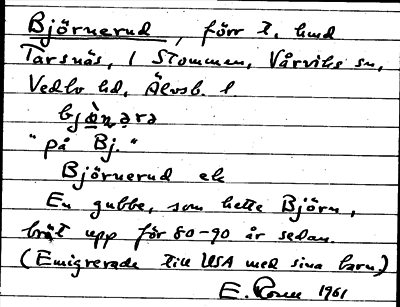 Björnerud, förr t. hmd
Tarsnäs, i Stommen, Vårviks sn,
Vedbo hd, Älvsb. l
bjø̀ṇərə
"på Bj."
Björnerud ek
En gubbe, som hette Björn,
bröt upp för 80-90 år sedan.
(Emigrerade till USA med sina barn)
E. 1961